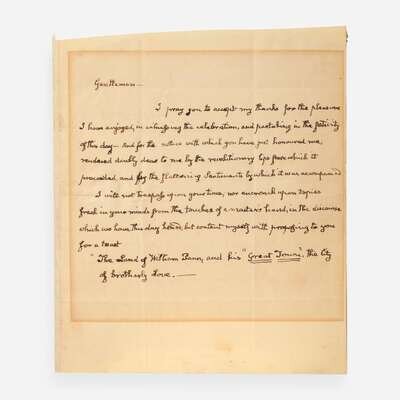 Gentlemen—
I pray you to accept my thanks for the pleasure
I have enjoyed, in witnessing the celebration, and partaking in the festivity
of this day—And for the notice with which you have just honoured me,
rendered doubly dear to me by the revolutionary lips from which it
proceeded, and by the flattering Sentiments by which it was accompanied
I will not trespass upon your time, nor encroach upon topics
fresh in your minds from the touches of a master's hand, in the discourse
which we have this day heard, but content myself with proposing to you
for a toast
"The Land of William Penn, and his "Great Town", the City
of brotherly love.—